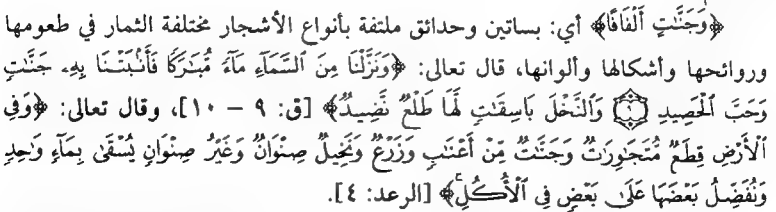 ﴿وَجَنَّٰتٍ أَلْفَافًا﴾ أي: بساتين وحدائق ملتفة بأنواع الأشجار مختلفة الثمار في طعومها
وروائحها وأشكالها وألوانها، قال تعالى: ﴿وَنَزَّلْنَا مِنَ السَّمَآءِ مَآءً مُّبَٰرَكًا فَأَنۢبَتْنَا بِهِۦ جَنَّٰتٍ
وَحَبَّ ٱلْحَصِيدِ ۝٩ وَٱلنَّخْلَ بَاسِقَٰتٍ لَّهَا طَلْعٌ نَّضِيدٌ﴾ [ق: ٩ – ١٠]، وقال تعالى: ﴿وَفِى
ٱلْأَرْضِ قِطَعٌ مُّتَجَٰوِرَٰتٌ وَجَنَّٰتٌ مِّنْ أَعْنَٰبٍ وَزَرْعٌ وَنَخِيلٌ صِنْوَانٌ وَغَيْرُ صِنْوَانٍ يُسْقَىٰ بِمَآءٍ وَٰحِدٍ
وَنُفَضِّلُ بَعْضَهَا عَلَىٰ بَعْضٍ فِى ٱلْأُكُلِ﴾ [الرعد: ٤].